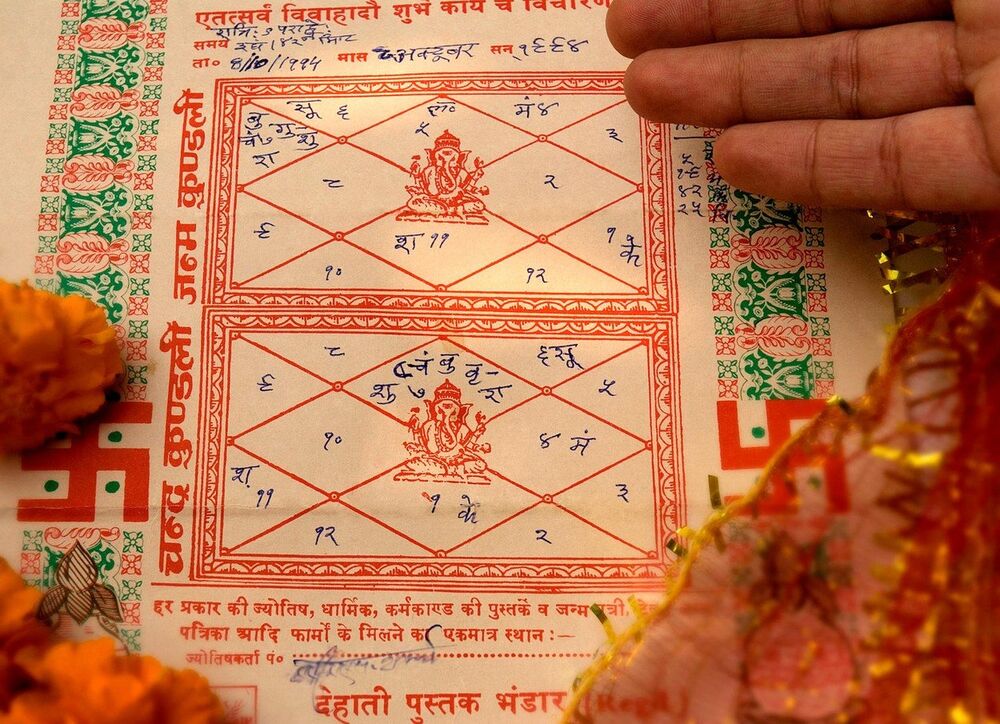 एतत्सर्वं विवाहादौ शुभं कार्यं च विचारणीयं
समय
ता० 8/10/1994 मास अक्टूबर सन् १९९४
जन्म कुण्डली
बु सू ६
चं ७ गु शु
रा
ल०
५
मं ४
३
८
२
९
श ११
१
के
१०
१२
५
१६
४२
२५
चन्द्र कुण्डली
८
चं बु बृ
शु ७ रा
६ सू
९
५
१०
४ मं
श
११
१ के
३
१२
२
हर प्रकार की ज्योतिष, धार्मिक, कर्मकाण्ड की पुस्तकें व जन्म पत्री,
पत्रिका आदि फार्मों के मिलने का एकमात्र स्थान :—
ज्योतिषकर्ता पं०
देहाती पुस्तक भंडार (Regd.)